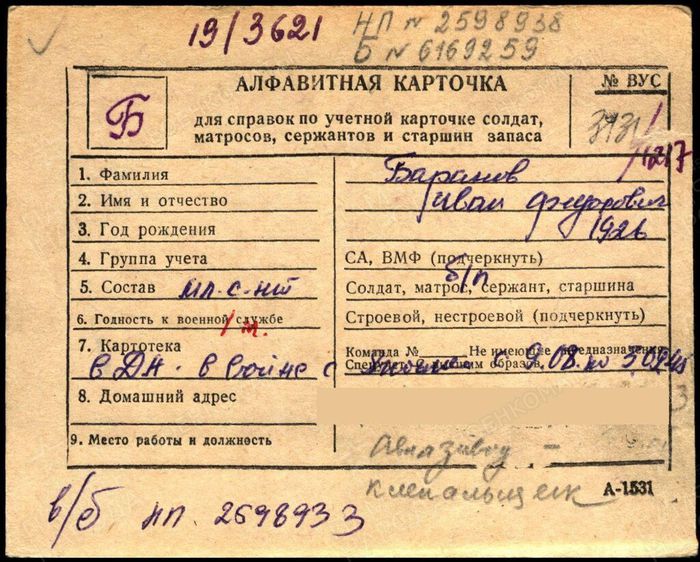 19/3621 НП № 2598938
Б № 6169259
Б
АЛФАВИТНАЯ КАРТОЧКА
для справок по учетной карточке солдат,
матросов, сержантов и старшин запаса
№ ВУС
3931/
/1217
1. Фамилия Баранов
2. Имя и отчество Иван Федорович
3. Год рождения 1926
4. Группа учета СА, ВМФ (подчеркнуть)
б/п
5. Состав мл. с-нт Солдат, матрос, сержант, старшина
6. Годность к военной службе Строевой, нестроевой (подчеркнуть)
7. Картотека Команда № Не имеющие предназначения
в войне с 9.08. по 3.09.45
8. Домашний адрес
9. Место работы и должность Авиазавод -
клепальщик
А-1531
в/б НП. 2698933